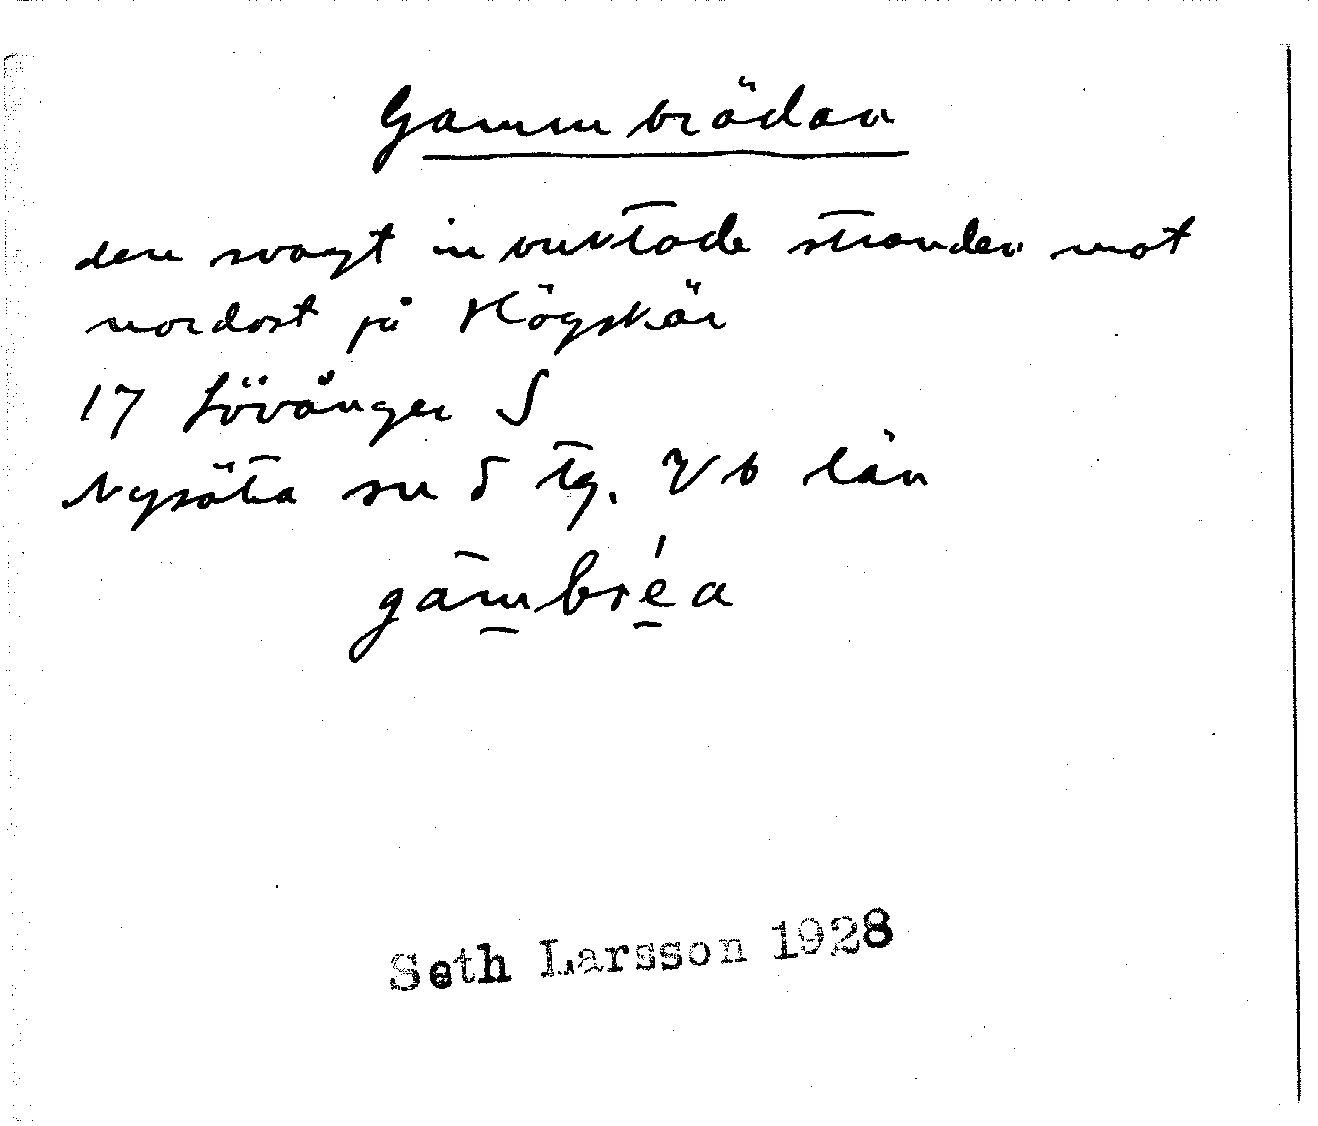 Gammbrädan
den svagt inbuktade stranden mot
nordost på Högskär
17 Lövånger S
Nysätra sn o tg. Vb län
gam̲bré̲a
Seth Larsson 1928